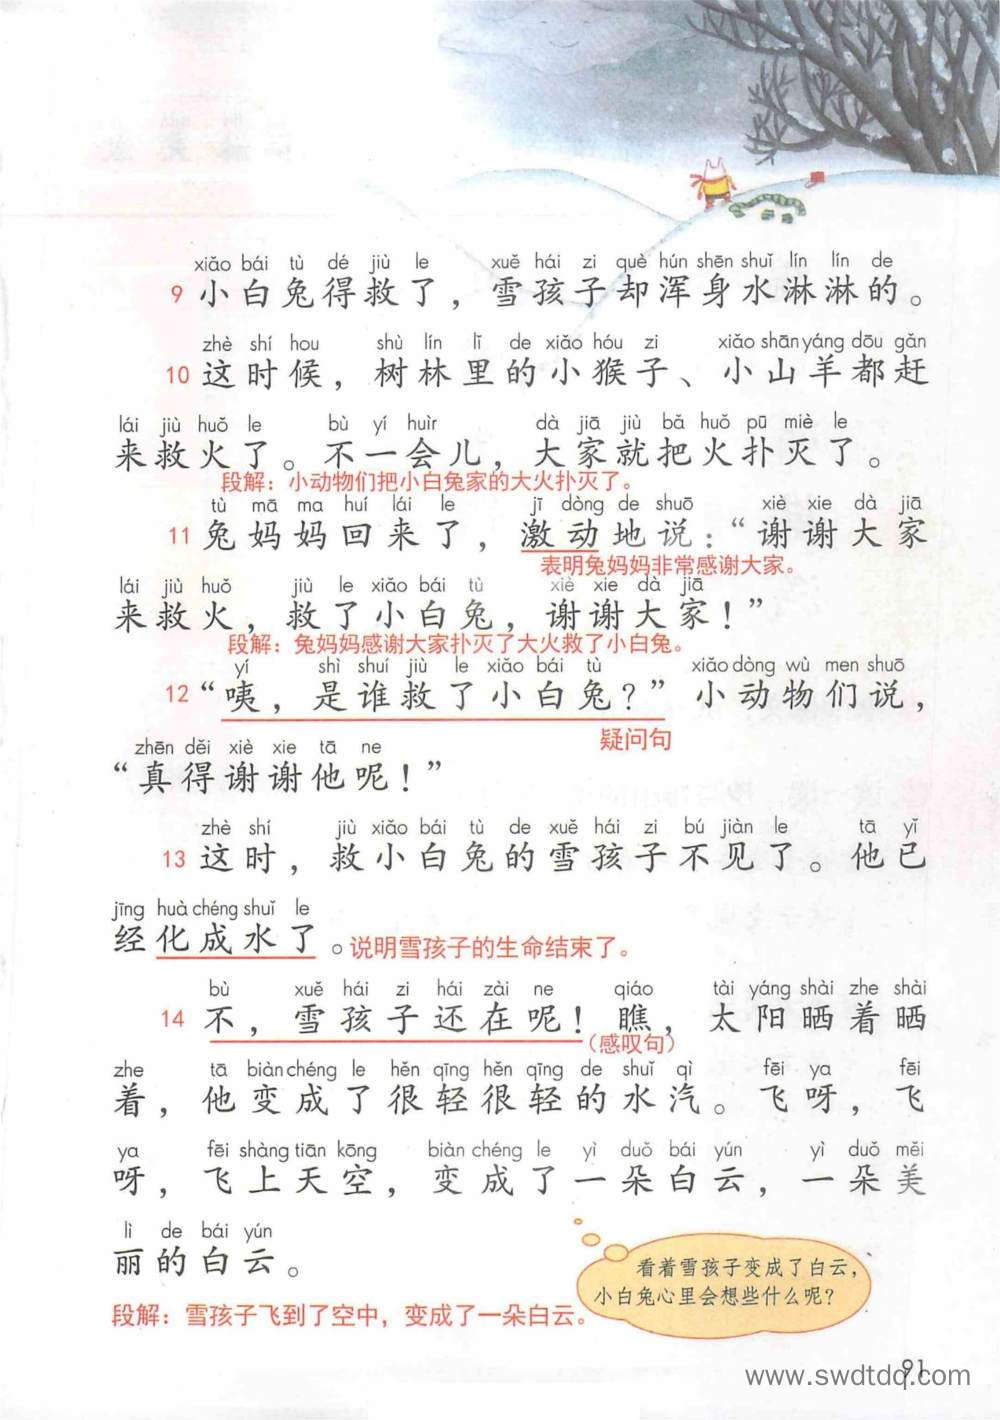 xiǎo bái tù dé jiù le xuě hái zi què hún shēn shuǐ lín lín de
9 小白兔得救了，雪孩子却浑身水淋淋的。
zhè shí hou shù lín lǐ de xiǎo hóu zi xiǎo shān yáng dōu gǎn
10 这时候，树林里的小猴子、小山羊都赶
lái jiù huǒ le bù yí huìr dà jiā jiù bǎ huǒ pū miè le
来救火了。不一会儿，大家就把火扑灭了。
段解：小动物们把小白兔家的大火扑灭了。
tù mā ma huí lái le jī dòng de shuō xiè xie dà jiā
11 兔妈妈回来了，激动地说：“谢谢大家
表明兔妈妈非常感谢大家。
lái jiù huǒ jiù le xiǎo bái tù xiè xie dà jiā
来救火，救了小白兔，谢谢大家！”
段解：兔妈妈感谢大家扑灭了大火救了小白兔。
yí shì shuí jiù le xiǎo bái tù xiǎo dòng wù men shuō
12 “咦，是谁救了小白兔？”小动物们说，
疑问句
zhēn děi xiè xie tā ne
“真得谢谢他呢！”
zhè shí jiù xiǎo bái tù de xuě hái zi bú jiàn le tā yǐ
13 这时，救小白兔的雪孩子不见了。他已
jīng huà chéng shuǐ le
经化成水了。说明雪孩子的生命结束了。
bù xuě hái zi hái zài ne qiáo tài yáng shài zhe shài
14 不，雪孩子还在呢！瞧，太阳晒着晒
（感叹句）
zhe tā biàn chéng le hěn qīng hěn qīng de shuǐ qì fēi ya fēi
着，他变成了很轻很轻的水汽。飞呀，飞
ya fēi shàng tiān kōng biàn chéng le yì duǒ bái yún yì duǒ měi
呀，飞上天空，变成了一朵白云，一朵美
lì de bái yún
丽的白云。
看着雪孩子变成了白云，
小白兔心里会想些什么呢？
段解：雪孩子飞到了空中，变成了一朵白云。
91
www.swdtdq.com